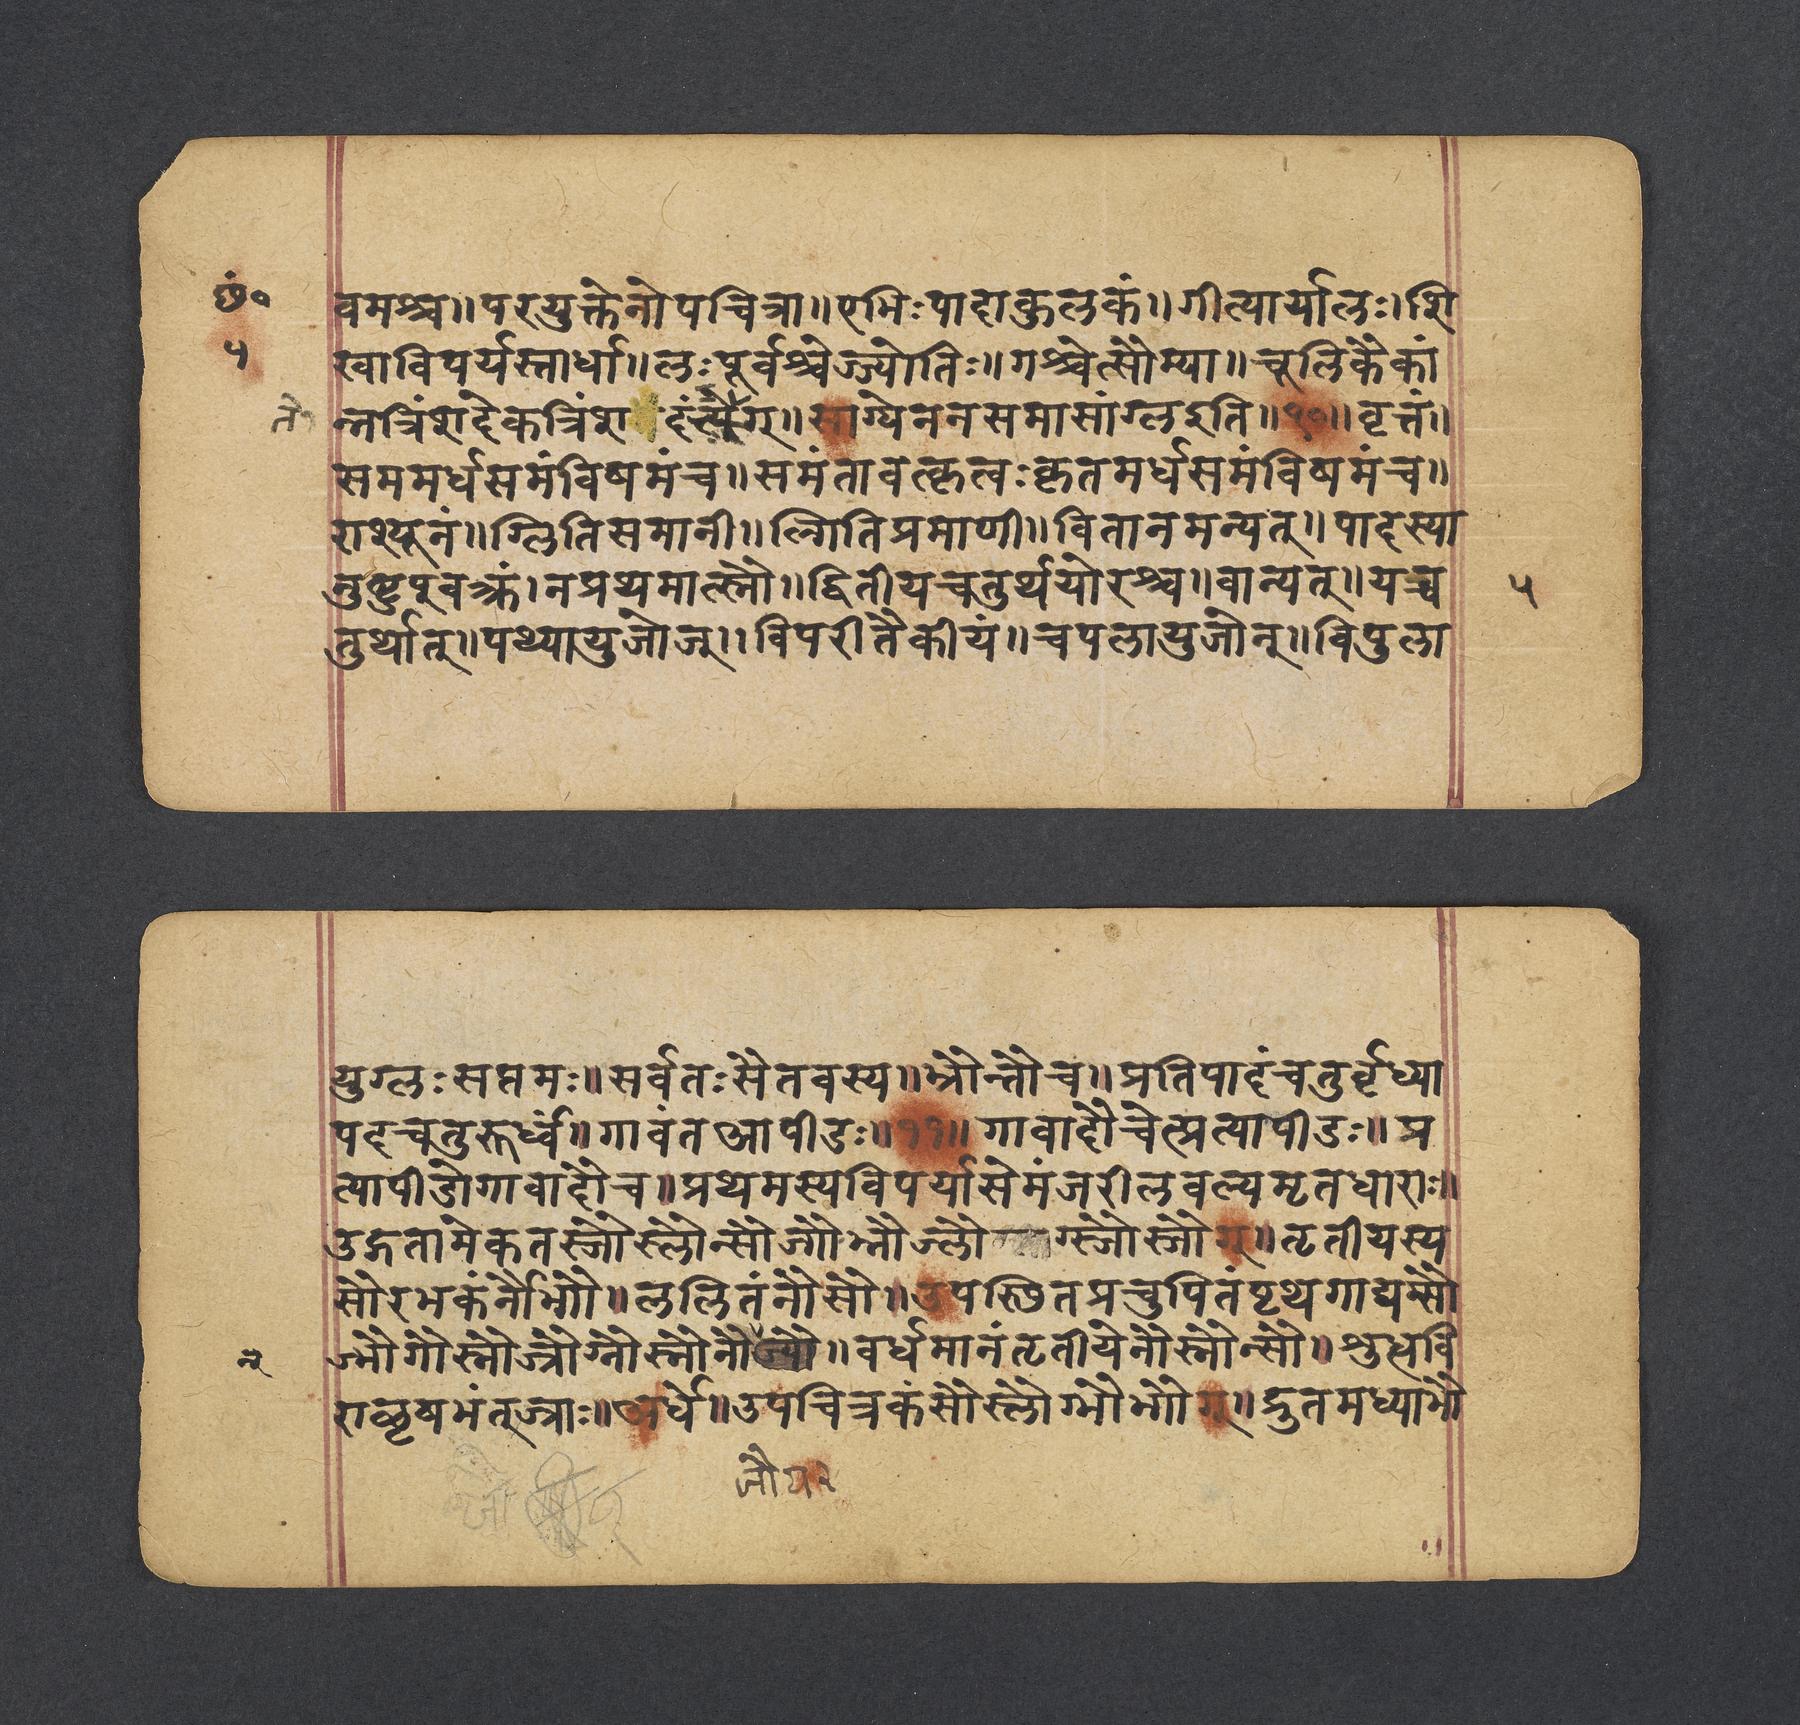 छं०
५
वमश्च॥परयुक्तेनोपचित्रा॥एभिःपादाकुलकं॥गीत्यार्यालः।शि
खाविपर्यस्तार्धा॥लःपूर्वश्चेज्ज्योतिः॥गश्चेत्सौम्या॥चूलिकैकां
न्नत्रिंशदेकत्रिंशा दंत्येग्॥साग्येननसमासांग्लइति॥१०॥वृत्तं॥
सममर्धसमंविषमंच॥समंतावत्कृत्वःकृतमर्धसमंविषमंच॥
राश्यूनं॥ग्लितिसमानी॥ल्गितिप्रमाणी॥वितानमन्यत्॥पादस्या
नुष्टुप्वक्त्रं।नप्रथमात्स्नौ॥द्वितीयचतुर्थयोरश्च॥वान्यत्॥यच्च
५
तुर्थात्॥पथ्यायुजोज्॥विपरीतैकीयं॥चपलायुजोन्॥विपुला
युग्लःसप्तमः॥सर्वतःसैतवस्य॥भ्रौन्तौच॥प्रतिपादंचतुर्वृध्या
पदचतुरूर्ध्वं॥गावंतआपीडः॥११॥गावादौचेत्प्रत्यापीडः॥प्र
त्यापीडोगावादौच॥प्रथमस्यविपर्यासेमंजरीलवल्यमृतधाराः॥
उद्गतामेकतस्जौस्लौन्सौज्गौभ्नौज्लौग्स्जौस्जौग्॥तृतीयस्य
सौरभकंर्नौभ्गौ॥ललितंनौसौ॥उपस्थितप्रचुपितंपृथगाद्यम्सौ
ज्भौगौस्नौज्रौग्नौस्नौनौज्यौ॥वर्धमानंतृतीयेनौस्नौन्सौ॥शुद्धवि
राळृषभंत्ज्राः॥अर्धे॥उपचित्रकंसौस्लौग्भौभ्गौग्॥द्रुतमध्याभौ